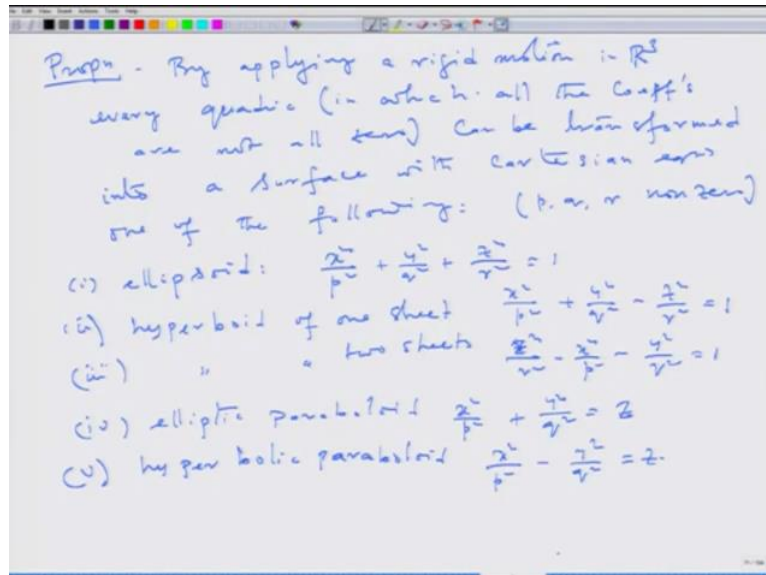 Propn - By applying a rigid motion in R³
every quadric (in which all the coeff's
are not all zero) can be transformed
into a surface with cartesian eqns
one of the following: (p, q, r non zero)
(i) ellipsoid: x²/p² + y²/q² + z²/r² = 1
(ii) hyperboloid of one sheet x²/p² + y²/q² - z²/r² = 1
(iii) " " two sheets z²/r² - x²/p² - y²/q² = 1
(iv) elliptic paraboloid x²/p² + y²/q² = z
(v) hyperbolic paraboloid x²/p² - y²/q² = z.